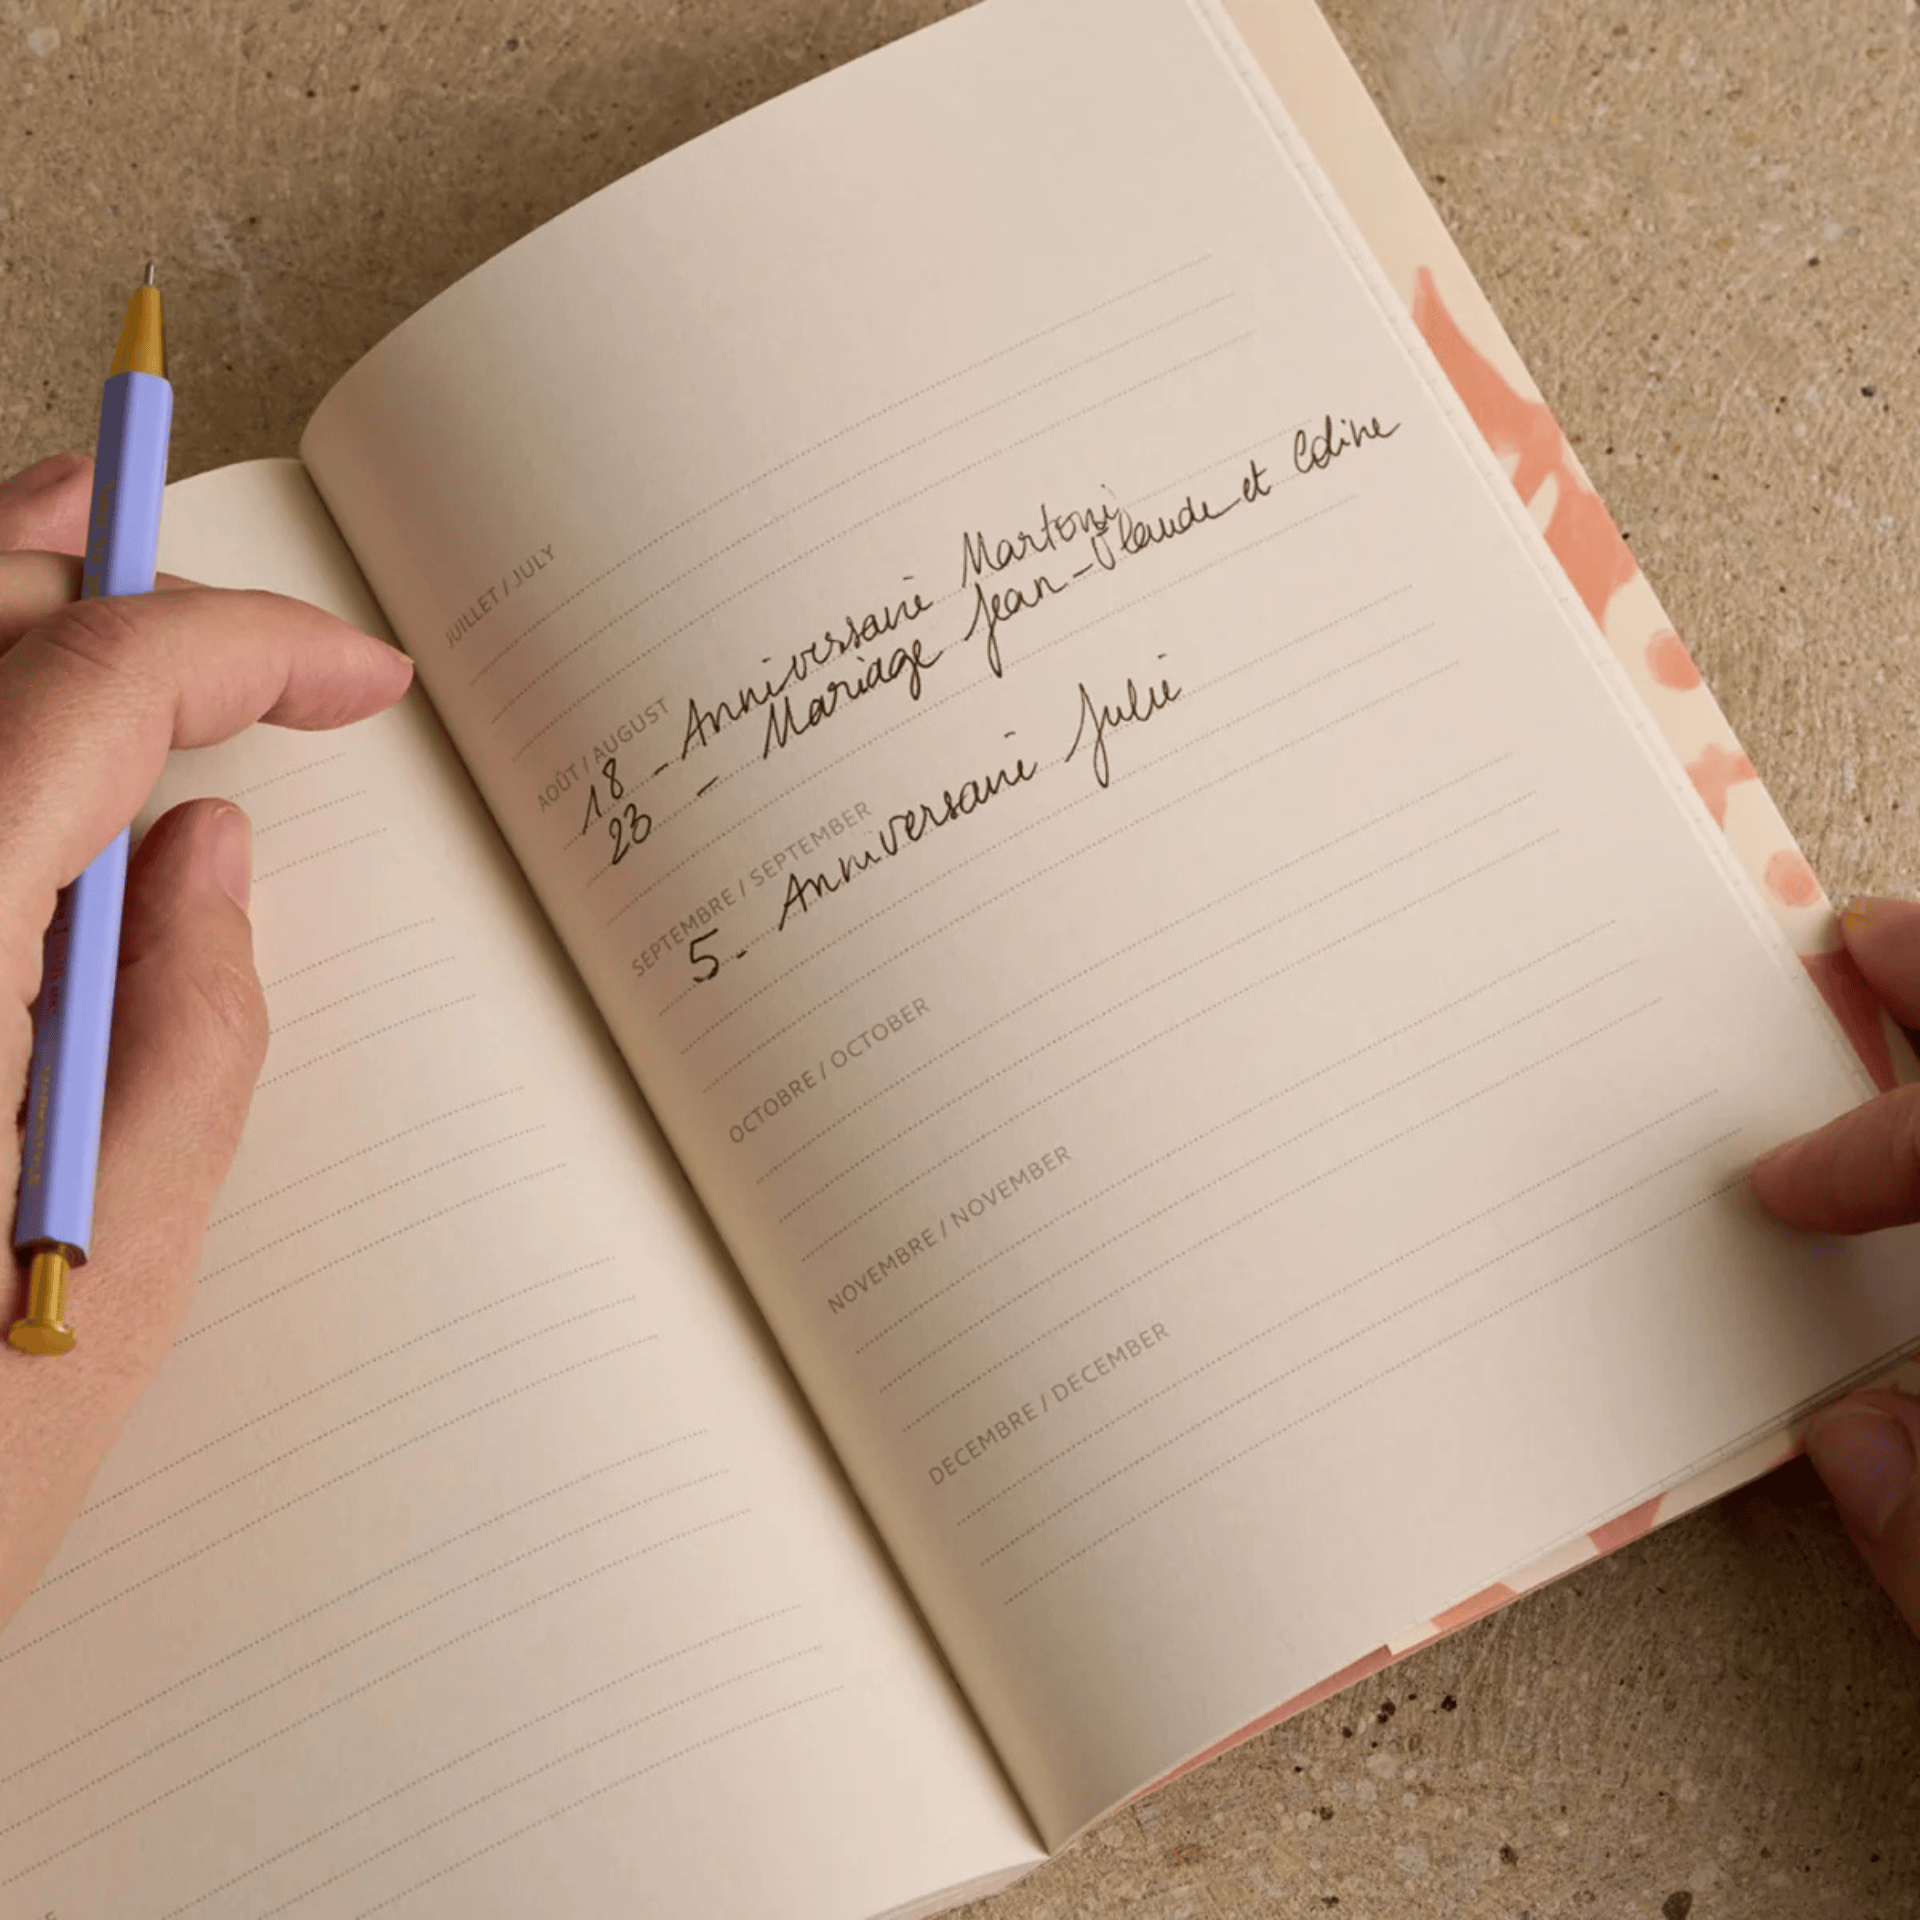 JUILLET / JULY
AOÛT / AUGUST
18 - Anniversaire Martoni
23 - Mariage Jean-Claude et Coline
SEPTEMBRE / SEPTEMBER
5. Anniversaire Julie
OCTOBRE / OCTOBER
NOVEMBRE / NOVEMBER
DECEMBRE / DECEMBER